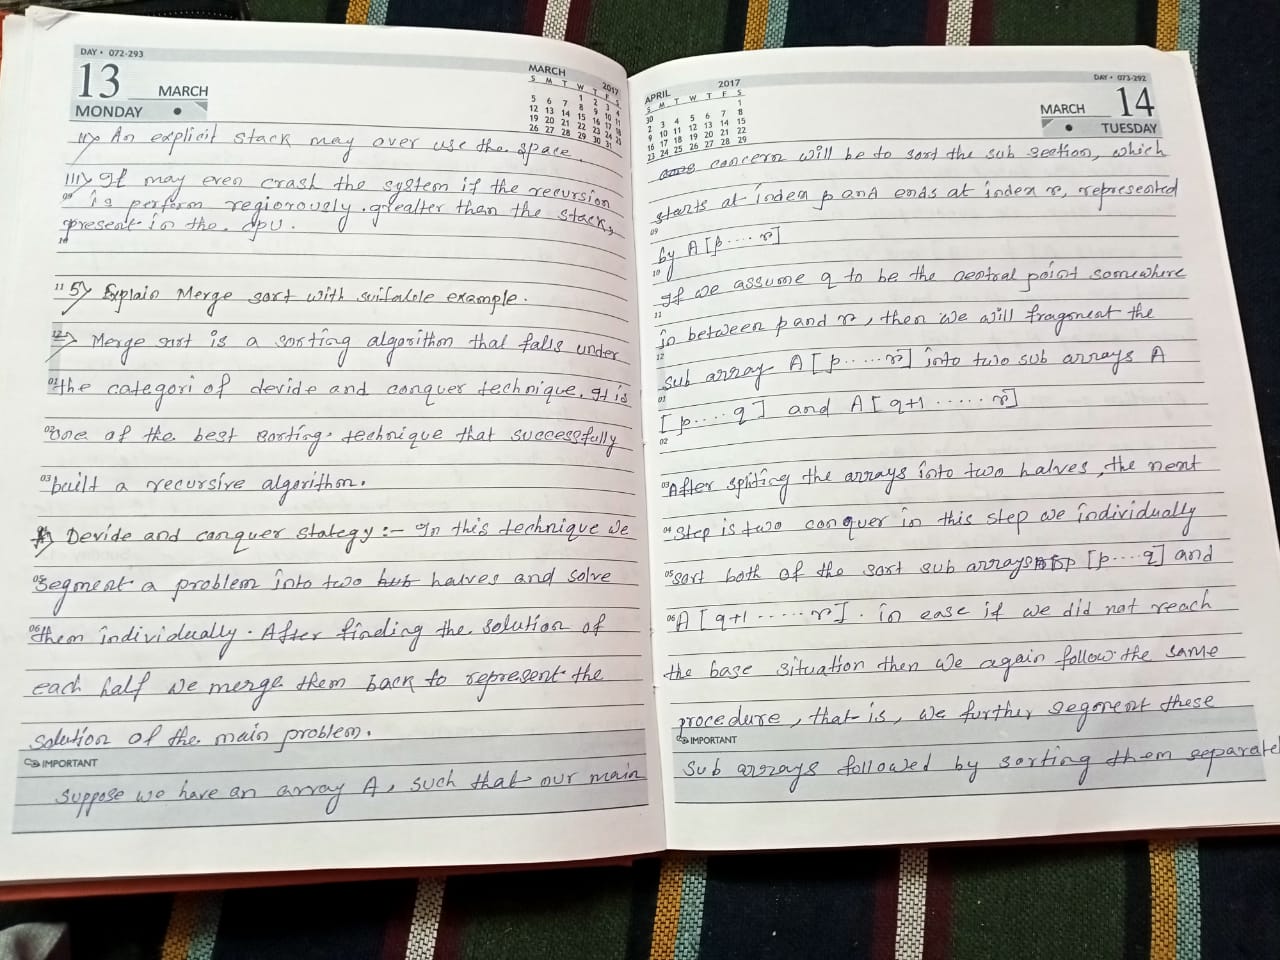 DAY • 072-293
13 MARCH
MONDAY
MARCH 2017
S M T W T F S
1 2 3 4
5 6 7 8 9 10 11
12 13 14 15 16 17 18
19 20 21 22 23 24 25
26 27 28 29 30 31
11> An explicit stack may over use the space.
111> It may even crash the system if the recursion
09 is perform regiorously. grealter than the stack,
present in the. cpu.
10
11 5> Explain Merge sort with suitable example.
12 => Merge sort is a sorting algorithm that falls under
01 the categori of devide and conquer technique. It is
02 one of the best sorting. technique that successfully
03 built a recursive algorithm.
Devide and conquer stategy :- In this technique we
05 segment a problem into two halves and solve
06 them individually. After finding the solution of
each half we merge them back to represent the
solution of the main problem.
IMPORTANT
suppose we have an array A, such that our main
APRIL 2017
S M T W T F S
30 1
2 3 4 5 6 7 8
9 10 11 12 13 14 15
16 17 18 19 20 21 22
23 24 25 26 27 28 29
DAY • 073-292
MARCH 14
TUESDAY
concern will be to sort the sub section, which
starts at index p and ends at index r, represented
09
by A [p .... r]
10
If we assume q to be the central point somewhere
11
in between p and r, then we will fragment the
12
sub array A [p ..... r] into two sub arrays A
01
[p.... q] and A [q+1 ...... r]
02
03 After spliting the arrays into two halves, the next
04 step is two conquer in this step we individually
05 sort both of the sort sub arrays [p....q] and
06 A [q+1 ...... r]. in case if we did not reach
the base situation then we again follow the same
procedure, that is, we further segment these
IMPORTANT
sub arrays followed by sorting them separatel